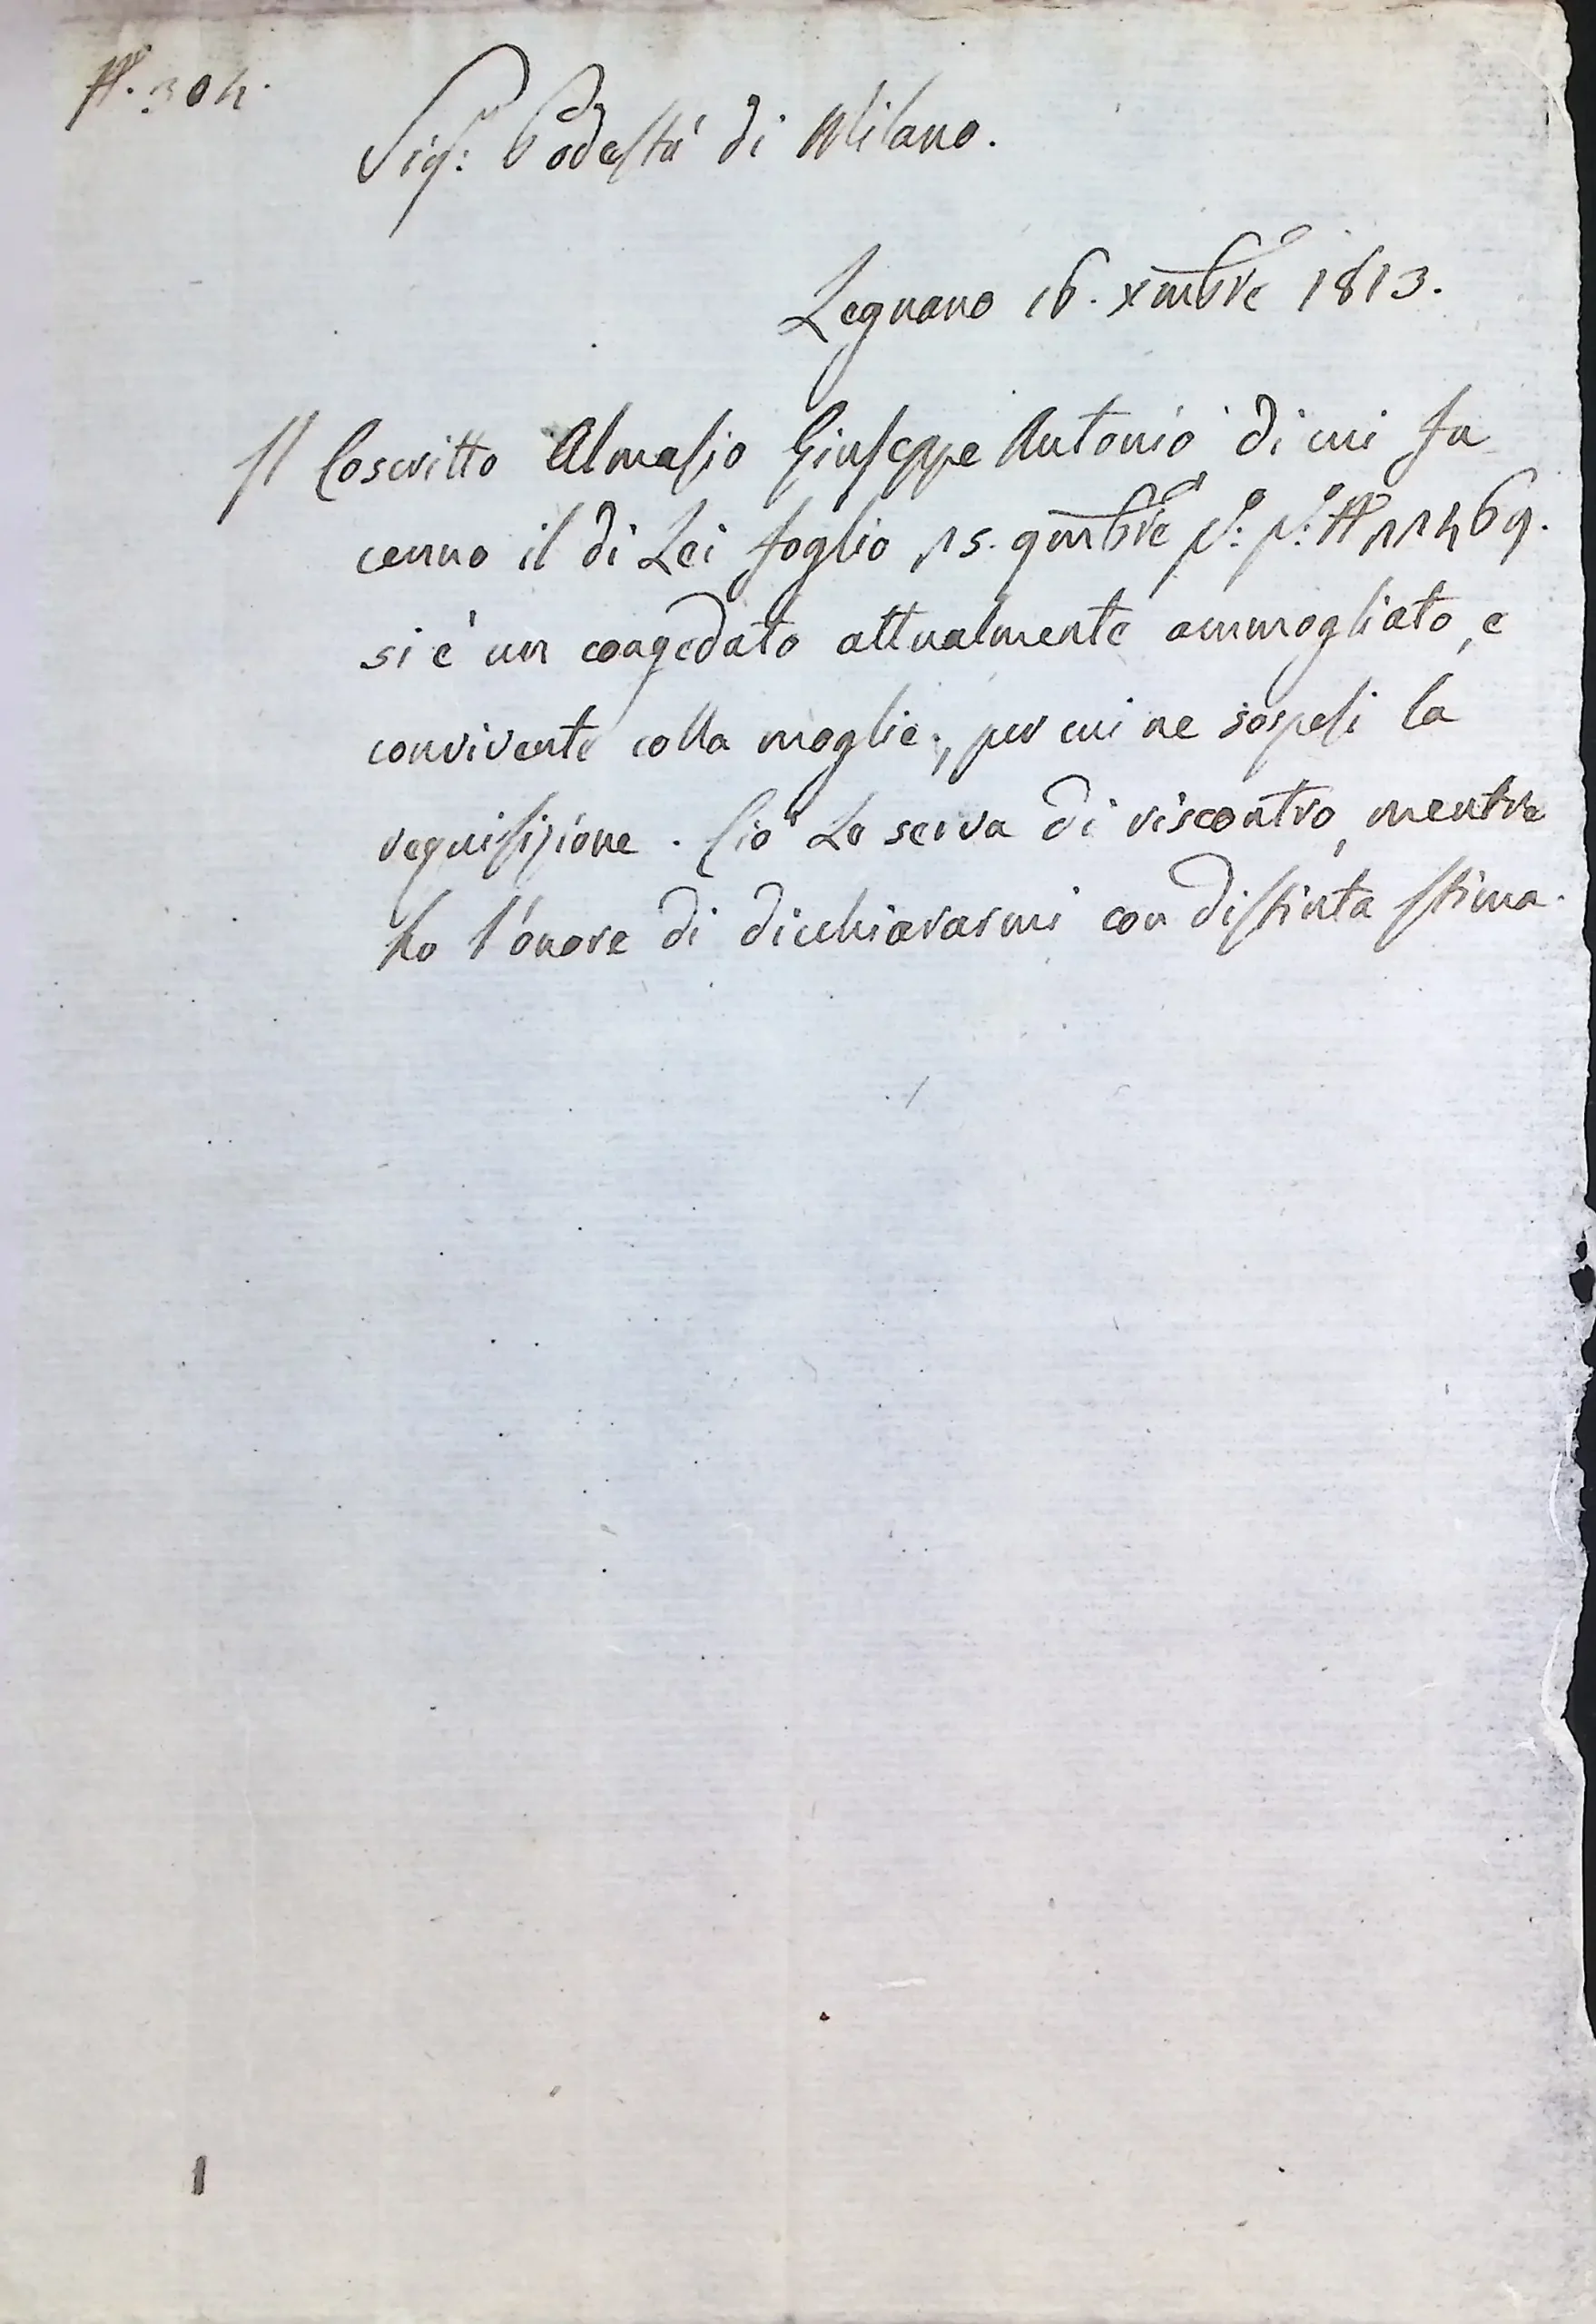 N. 304.
Sig.r Podestà di Milano.
Legnano 16. Xmbre 1813.
Il Coscritto Almasio Giuseppe Antonio di cui fa
cenno il di Lei foglio 15. 9mbre p.o p.o N 11469.
si è un congedato attualmente ammogliato, e
convivente colla moglie, per cui ne sospesi la
requisizione. Ciò Le serva di riscontro, mentre
ho l'onore di dicchiararmi con distinta stima.